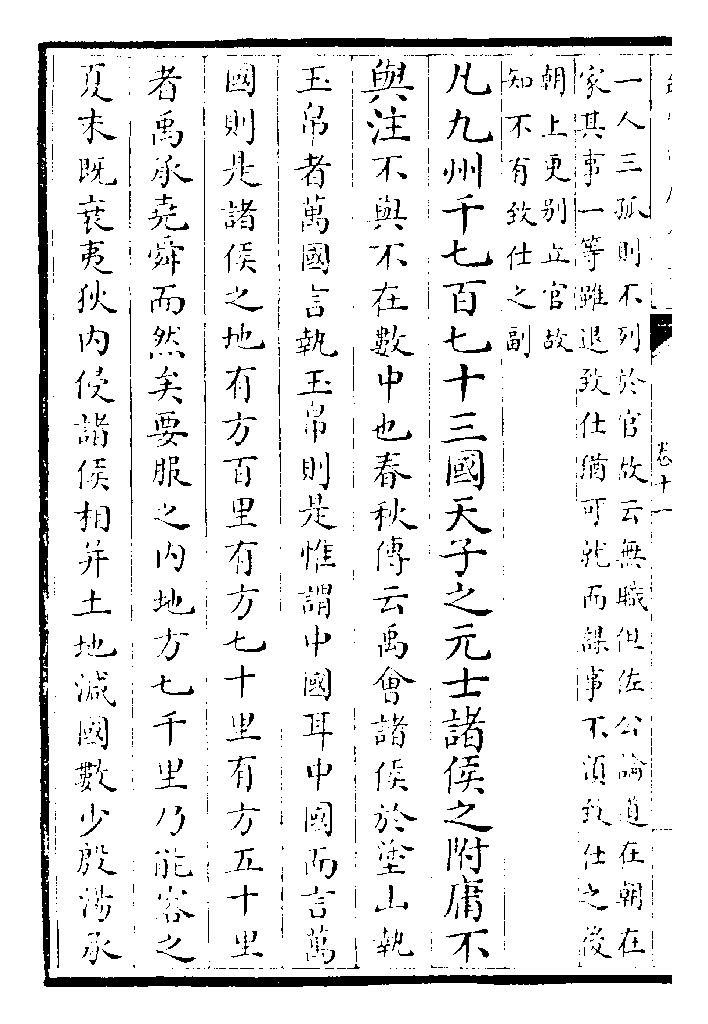 卷十一
一人三孤則不列於官故云無職但佐公論道在朝在
家其事一等雖退致仕猶可就而謀事不須致仕之後
朝上更别立官故
知不有致仕之副
凡九州千七百七十三國天子之元士諸侯之附庸不
與注不與不在數中也春秋傳云禹會諸侯於塗山執
玉帛者萬國言執玉帛則是惟謂中國耳中國而言萬
國則是諸侯之地有方百里有方七十里有方五十里
者禹承堯舜而然矣要服之内地方七千里乃能容之
夏末既衰夷狄内侵諸侯相并土地減國數少殷湯承